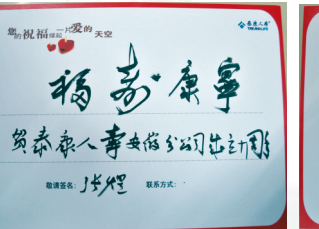 您的祝福撑起一片爱的天空
泰康人寿
TAIKANG LIFE
福寿康寧
贺泰康人寿安徽分公司成立十周年
敬请签名：
联系方式：